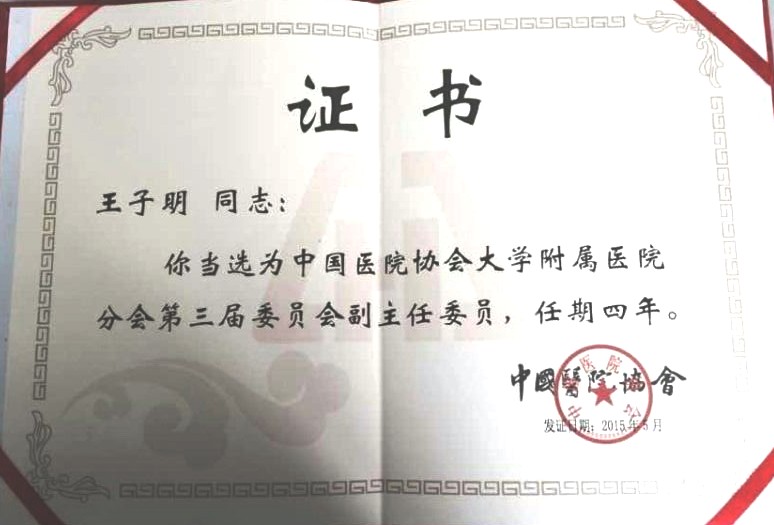 证书
王子明 同志：
你当选为中国医院协会大学附属医院
分会第三届委员会副主任委员，任期四年。
中國醫院協會
发证日期：2015年5月
中国医院协会